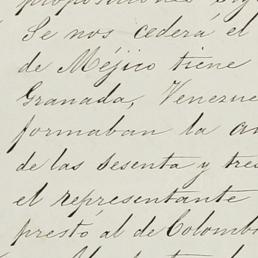 proposiciones
Se nos cederá el
de Méjico tiene
Granada, Venezue
formaban la an
de las sesenta y tres
el representante
prestó al de Colombi